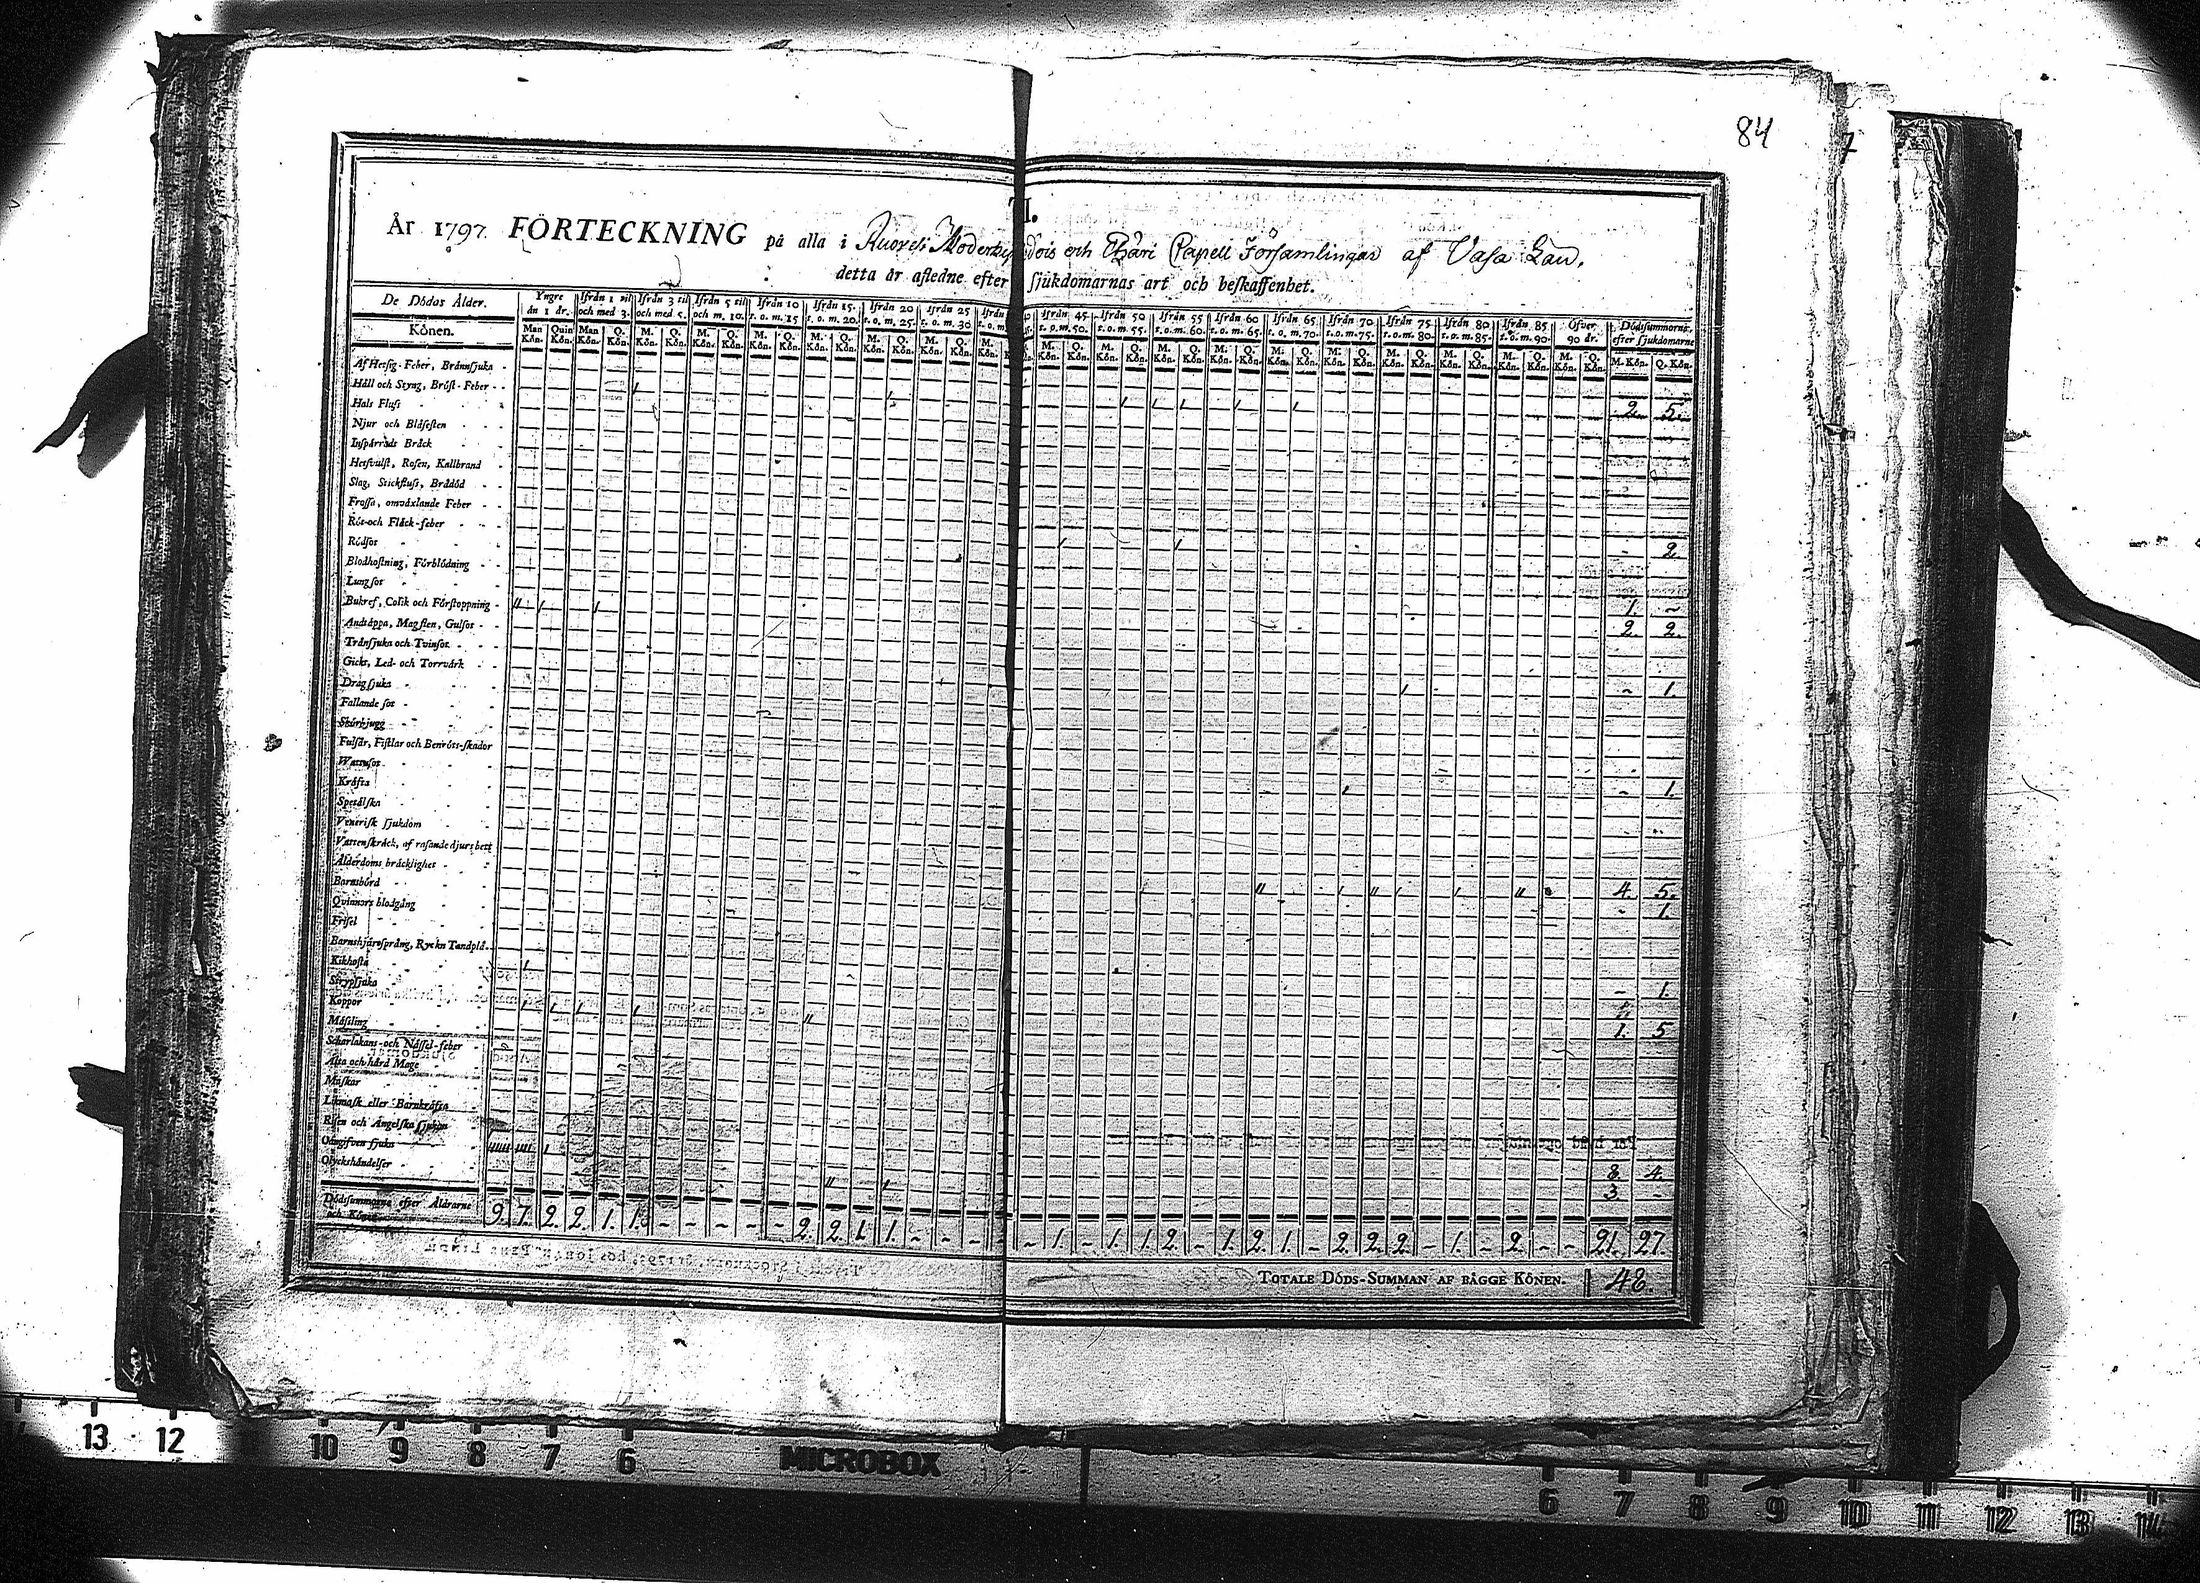 84
VI.
År 1797. FÖRTECKNING på alla i Ruovesi Moderkyrkdois och Ehäri Capell Församlingar af Vasa Län,
detta år afledne efter sjukdomarnas art och beskaffenhet.
De Dödas Ålder. Yngre än 1 år. Ifrån 1 til och med 3. Ifrån 3 til och med 5. Ifrån 5 til och m. 10. Ifrån 10 t. o. m. 15 Ifrån 15. t. o. m. 20. Ifrån 20 t. o. m. 25. Ifrån 25 t. o. m. 30 Ifrån 45. t. o. m. 50. Ifrån 50 t. o. m. 55. Ifrån 55 t. o. m. 60. Ifrån 60 t. o. m. 65. Ifrån 65. t. o. m. 70. Ifrån 70 t. o. m. 75. Ifrån 75 t. o. m. 80. Ifrån 80 t. o. m. 85. Ifrån 85 t. o. m. 90. Öfver 90 år. Dödssummorne efter sjukdomarne
Könen. Man Kön. Quin Kön. Man Kön. Q. Kön. M. Kön. Q. Kön. M. Kön. Q. Kön. M. Kön. Q. Kön. M. Kön. Q. Kön. M. Kön. Q. Kön. M. Kön. Q. Kön. M. Kön. M. Kön. Q. Kön. M. Kön. Q. Kön. M. Kön. Q. Kön. M. Kön. Q. Kön. M. Kön. Q. Kön. M. Kön. Q. Kön. M. Kön. Q. Kön. M. Kön. Q. Kön. M. Kön. Q. Kön. M. Kön. Q. Kön. M. Kön. Q. Kön.
Af Hetsig-Feber, Brännsjuka
Håll och Styng, Bröst-Feber 2. 5.
Hals Fluss
Njur och Blåsesten
Inspärradt Bråck
Hetsvulst, Rosen, Kallbrand
Slag, Stickfluss, Brådöd
Frossa, omväxlande Feber
Röt-och Fläck-feber
Rödsot 2.
Blodhostning, Förblödning
Lungsot
Bukref, Colik och Förstoppning 1. ~
Andtäppa, Magsten, Gulsot 2. 2.
Trånsjuka och Tvinsot
Gickt, Led- och Torrvärk
Dragsjuka ~ 1.
Fallande sot
Skörbjugg
Fulsår, Fistlar och Benröts-skador
Wattusot
Kräfta - 1.
Spetälska
Venerisk sjukdom
Vattenskräck, af rasande djurs bett
Ålderdoms bräcklighet 4. 5.
Barnsbörd - 1.
Qvinnors blodgång
Frisel
Barnshjärtsprång, Ryck n Tandplå.
Kikhosta - 1.
Strypsjuka
Koppor 1. 5
Mässling
Scharlakans-och Nässel-feber
Älta och hård Mage
Maskar
Likmask eller Barnkräfta
Risen och Ängelska sjukan
Oangifven sjuka 8. 4.
Olyckshändelser 3. -
Dödssummorne efter Åldrarne och Könen 9. 7. 2. 2. 1. 1. - - - - - 2. 2. 1. 1. - - - - - 1. - 1. 1. 2. - 1. 2. 1. - 2. 2. 2. - 1. - 2. - - 21. 27.
TOTALE DÖDS-SUMMAN AF BÄGGE KÖNEN. 48.
13 12 10 9 8 7 6 MICROBOX 6 7 8 9 10 11 12 13 14